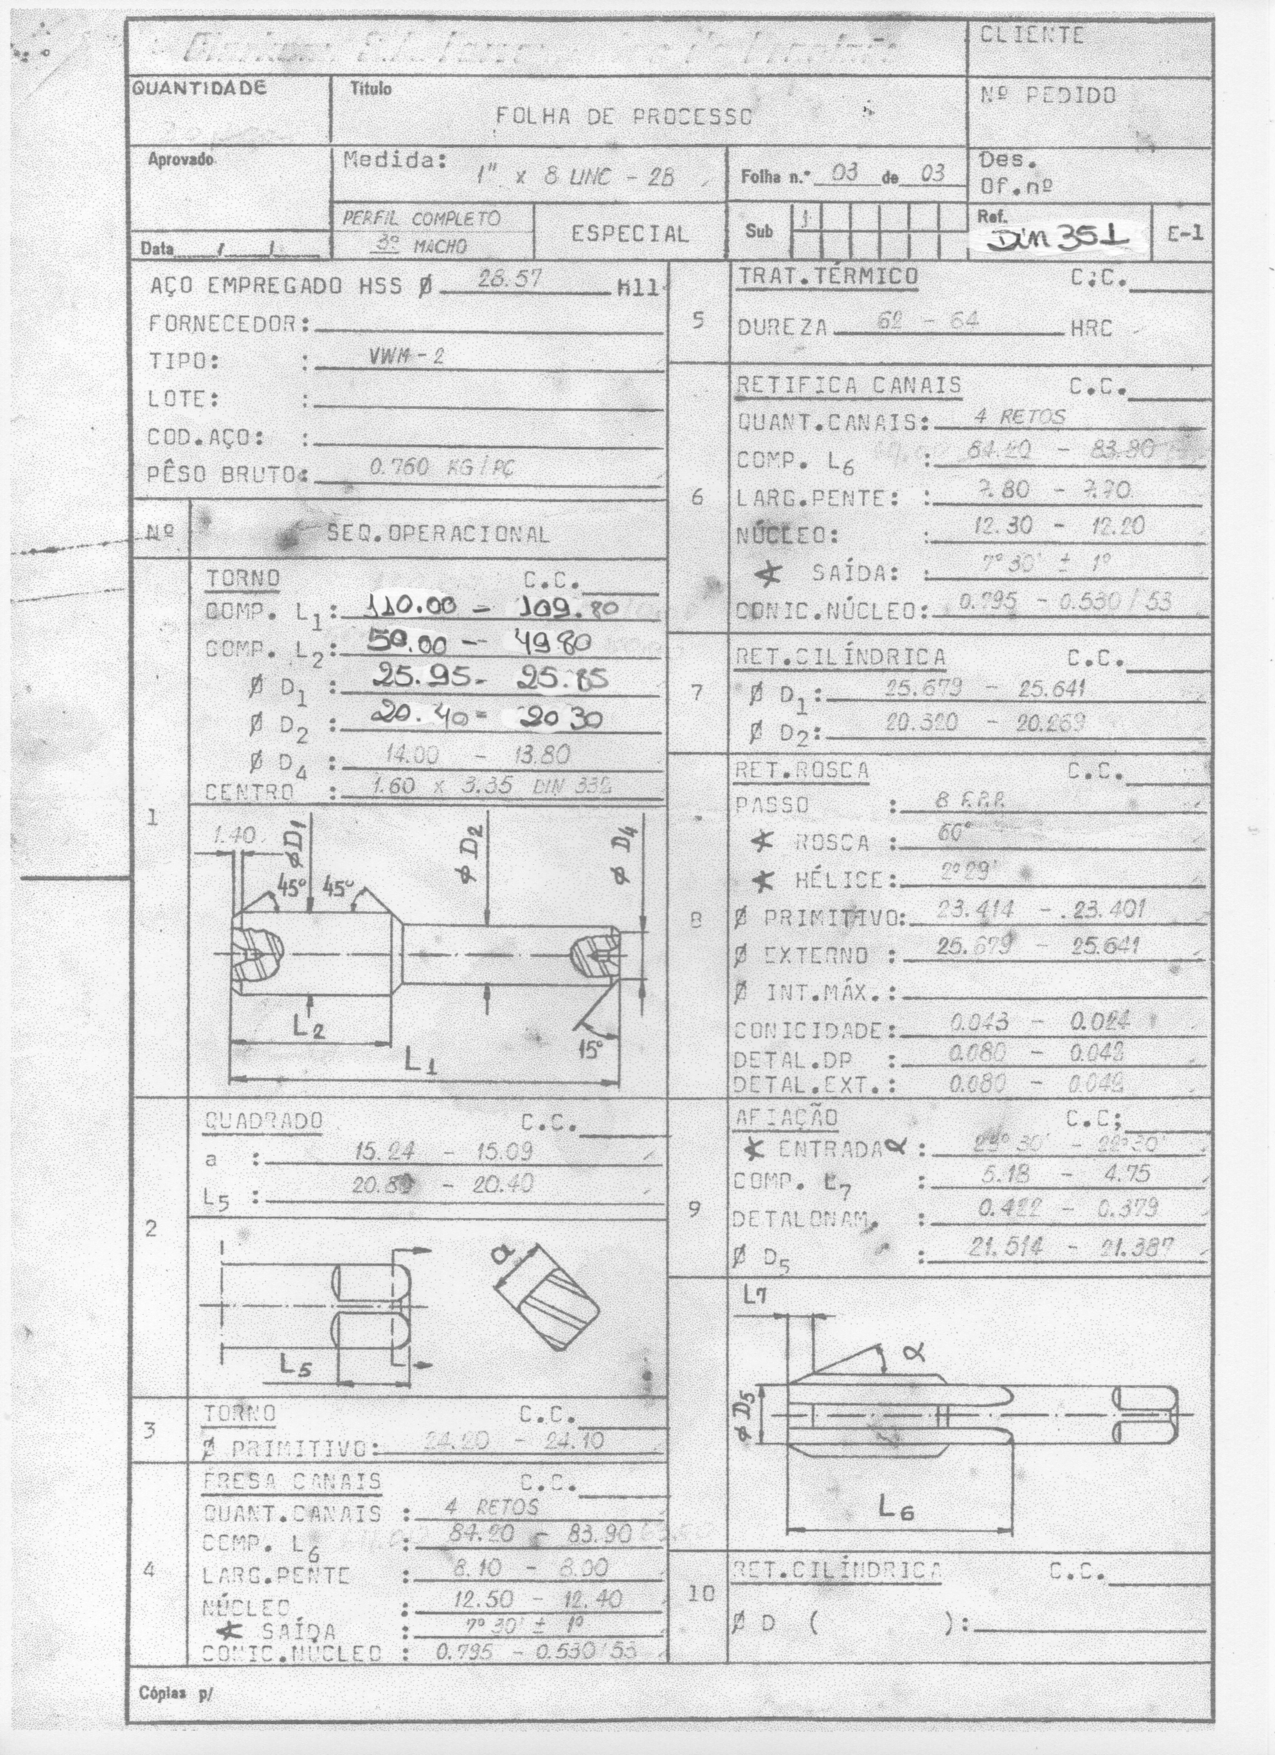 CLIENTE
QUANTIDADE
Título
FOLHA DE PROCESSO
Nº PEDIDO
Aprovado
Medida: 1" x 8 UNC - 2B
Folha n.º 03 de 03
Des.
Of.nº
PERFIL COMPLETO
3º MACHO
ESPECIAL
Sub
Ref.
DIN 351
E-1
Data / /
AÇO EMPREGADO HSS Ø 28.57 h11
FORNECEDOR:
TIPO: : VWM-2
LOTE: :
COD.AÇO: :
PÊSO BRUTO: 0.760 KG/PÇ
Nº SEQ.OPERACIONAL
1
TORNO C.C.
COMP. L1: 110.00 - 109.80
COMP. L2: 50.00 - 49.80
Ø D1 : 25.95 - 25.85
Ø D2 : 20.40 - 20.30
Ø D4 : 14.00 - 13.80
CENTRO : 1.60 x 3.35 DIN 332
1.40
ØD1
Ø D2
Ø D4
45º 45º
L2
15º
L1
2
QUADRADO C.C.
a : 15.24 - 15.09
L5 : - 20.40
a
L5
3
TORNO C.C.
Ø PRIMITIVO: 24.20 - 24.10
4
FRESA CANAIS C.C.
QUANT.CANAIS : 4 RETOS
COMP. L6 : 84.20 - 83.90
LARG.PENTE : 8.10 - 8.00
NÚCLEO : 12.50 - 12.40
∢ SAÍDA : 7º 30' ± 1º
CONIC.NÚCLEO : 0.795 - 0.530/53
5
TRAT.TÉRMICO C.C.
DUREZA 62 - 64 HRC
6
RETIFICA CANAIS C.C.
QUANT.CANAIS: 4 RETOS
COMP. L6 : 84.20 - 83.90
LARG.PENTE: : 7.80 - 7.70
NÚCLEO: : 12.30 - 12.20
∢ SAÍDA: : 7º 30' ± 1º
CONIC.NÚCLEO: 0.795 - 0.530/53
7
RET.CILÍNDRICA C.C.
Ø D1: 25.679 - 25.641
Ø D2: 20.320 - 20.269
8
RET.ROSCA C.C.
PASSO : 8 F.P.P.
∢ ROSCA : 60º
∢ HÉLICE: 2º29'
Ø PRIMITIVO: 23.414 - 23.401
Ø EXTERNO : 25.679 - 25.641
Ø INT.MÁX.:
CONICIDADE: 0.043 - 0.024
DETAL.DP : 0.080 - 0.048
DETAL.EXT.: 0.080 - 0.048
9
AFIAÇÃO C.C;
∢ ENTRADA α : 23º 30' - 22º 30'
COMP. L7 : 5.18 - 4.75
DETALONAM. : 0.422 - 0.379
Ø D5 : 21.514 - 21.387
L7
α
Ø D5
L6
10
RET.CILÍNDRICA C.C.
Ø D ( ):
Cópias p/